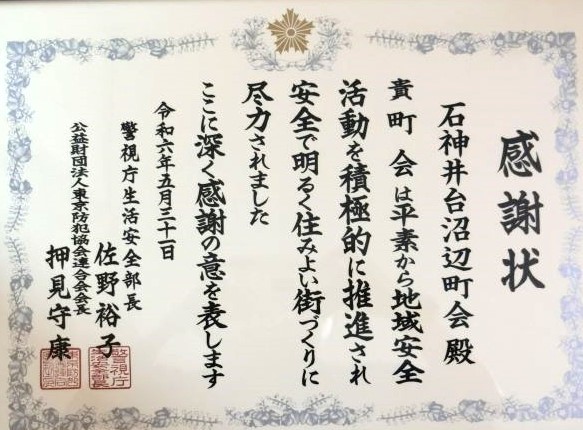 感謝状
石神井台沼辺町会 殿
貴町会は平素から地域安全
活動を積極的に推進され
安全で明るく住みよい街づくりに
尽力されました
ここに深く感謝の意を表します
令和六年五月三十一日
警視庁生活安全部長
佐野裕子
公益財団法人東京防犯協会連合会会長
押見守康
警視庁